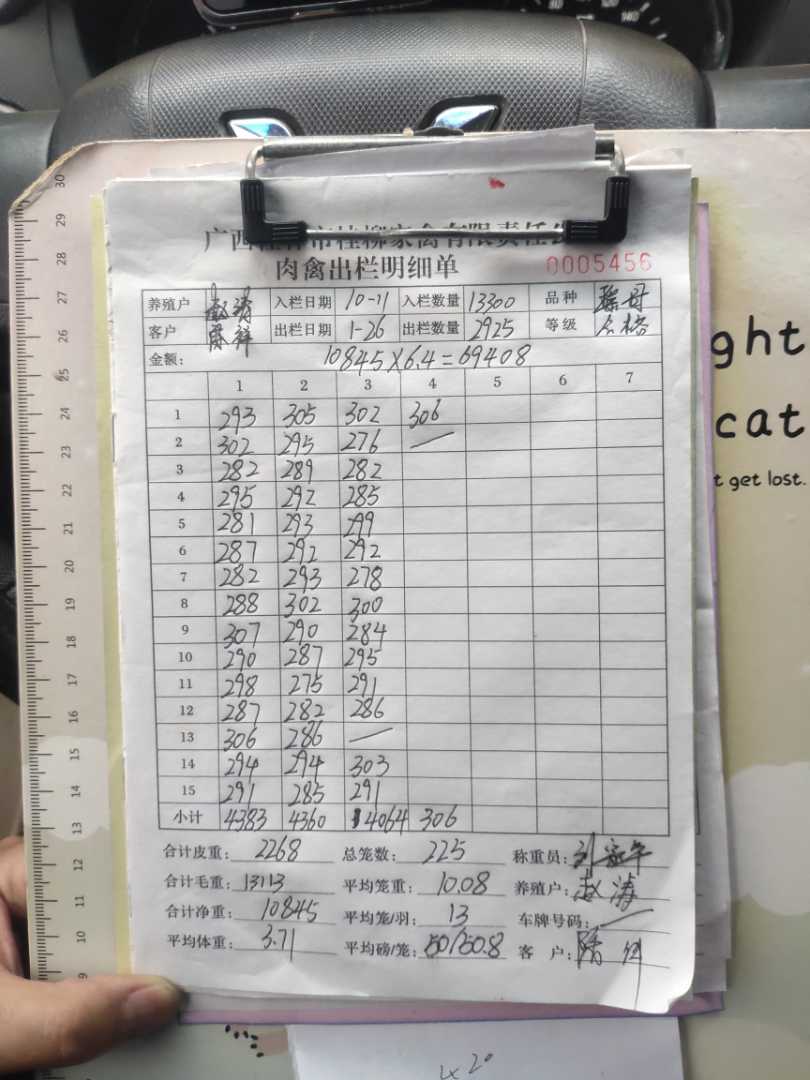 肉禽出栏明细单 0005456
养殖户 入栏日期 10-11 入栏数量 13300 品种
客户 出栏日期 1-26 出栏数量 2925 等级 合格
金额: 10845×6.4=69408
1 2 3 4 5 6 7
1 293 305 302 306
2 302 295 276 —
3 282 289 282
4 295 292 285
5 281 293 299
6 287 292 292
7 282 293 278
8 288 302 300
9 307 290 284
10 290 287 295
11 298 275 291
12 287 282 286
13 306 286 —
14 294 294 303
15 291 285 291
小计 4383 4360 4064 306
合计皮重: 2268 总笼数: 225 称重员:
合计毛重: 13113 平均笼重: 10.08 养殖户: 赵涛
合计净重: 10845 平均笼/羽: 13 车牌号码: —
平均体重: 3.71 平均磅/笼: 50/50.8 客 户:
ght
cat
t get lost.
30
29
28
27
26
25
24
23
22
21
20
19
18
17
16
15
14
13
12
11
10
9